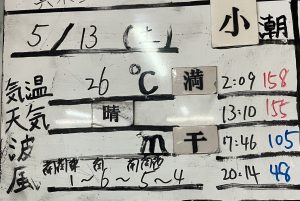 5/13 (土) 小潮
気温 26 ℃ 満 2:09 158
天気 晴 13:10 155
波 m 干 7:46 105
風 1~6~5~4 20:14 48